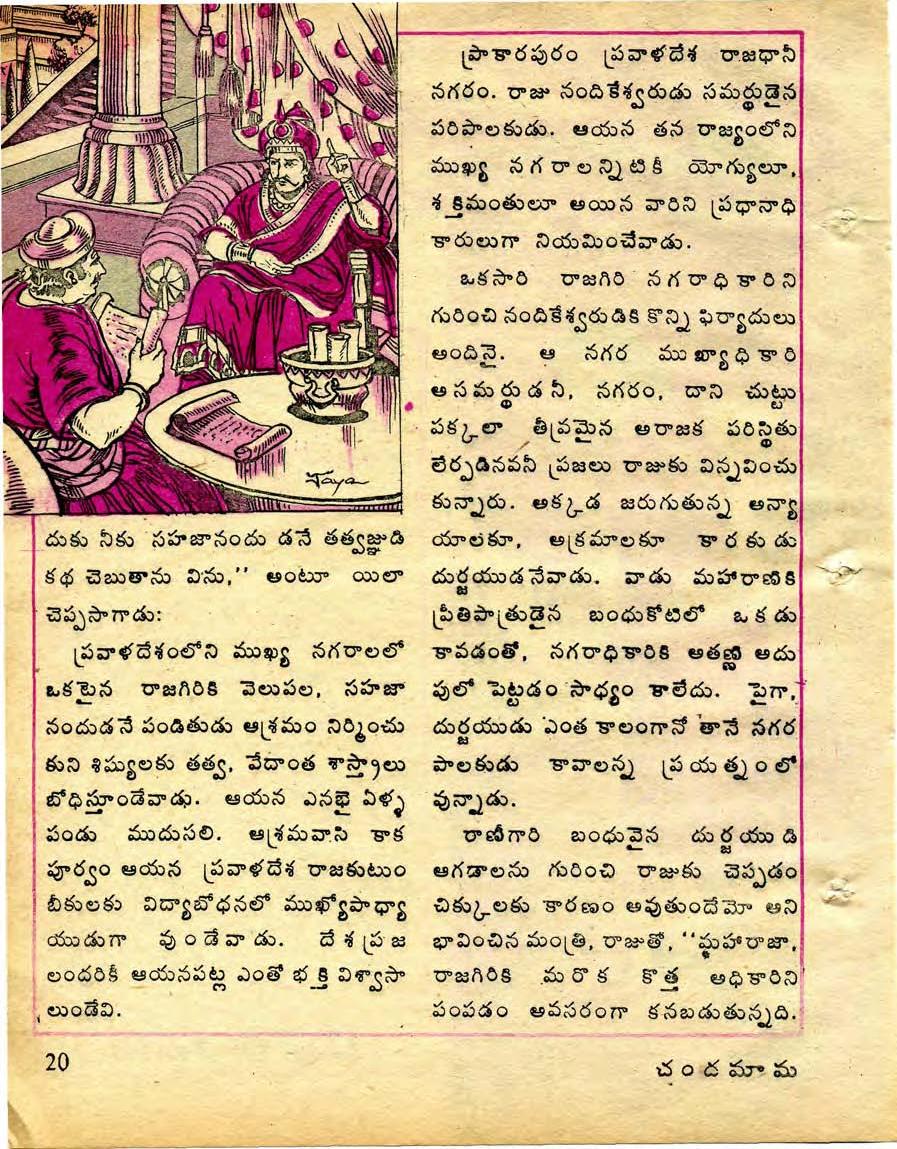 దుకు నీకు సహజానందు డనే తత్వజ్ఞుడి
కథ చెబుతాను విను,'' అంటూ యిలా
చెప్పసాగాడు:
ప్రవాళదేశంలోని ముఖ్య నగరాలలో
ఒకటైన రాజగిరికి వెలుపల, సహజా
నందుడనే పండితుడు ఆశ్రమం నిర్మించు
కుని శిష్యులకు తత్వ, వేదాంత శాస్త్రాలు
బోధిస్తూండేవాడు. ఆయన ఎనభై ఏళ్ళ
పండు ముదుసలి. ఆశ్రమవాసి కాక
పూర్వం ఆయన ప్రవాళదేశ రాజకుటుం
బీకులకు విద్యాబోధనలో ముఖ్యోపాధ్యా
యుడుగా వుండేవాడు. దేశప్రజ
లందరికీ ఆయనపట్ల ఎంతో భక్తి విశ్వాసా
లుండేవి.
ప్రాకారపురం ప్రవాళదేశ రాజధానీ
నగరం. రాజు నందికేశ్వరుడు సమర్థుడైన
పరిపాలకుడు. ఆయన తన రాజ్యంలోని
ముఖ్య నగరాలన్నిటికీ యోగ్యులూ,
శక్తిమంతులూ అయిన వారిని ప్రధానాధి
కారులుగా నియమించేవాడు.
ఒకసారి రాజగిరి నగరాధికారిని
గురించి నందికేశ్వరుడికి కొన్ని ఫిర్యాదులు
అందినై. ఆ నగర ముఖ్యాధికారి
అసమర్థుడనీ, నగరం, దాని చుట్టు
పక్కలా తీవ్రమైన అరాజక పరిస్థితు
లేర్పడినవనీ ప్రజలు రాజుకు విన్నవించు
కున్నారు. అక్కడ జరుగుతున్న అన్యా
యాలకూ, అక్రమాలకూ కారకుడు
దుర్జయుడనేవాడు. వాడు మహారాణికి
ప్రీతిపాత్రుడైన బంధుకోటిలో ఒకడు
కావడంతో, నగరాధికారికి అతణ్ణి అదు
పులో పెట్టడం సాధ్యం కాలేదు. పైగా,
దుర్జయుడు ఎంత కాలంగానో తానే నగర
పాలకుడు కావాలన్న ప్రయత్నంలో
వున్నాడు.
రాణీగారి బంధువైన దుర్జయుడి
ఆగడాలను గురించి రాజుకు చెప్పడం
చిక్కులకు కారణం అవుతుందేమో అని
భావించిన మంత్రి, రాజుతో, ''మహారాజా,
రాజగిరికి మరొక కొత్త అధికారిని
పంపడం అవసరంగా కనబడుతున్నది.
Jaya
20
చందమామ